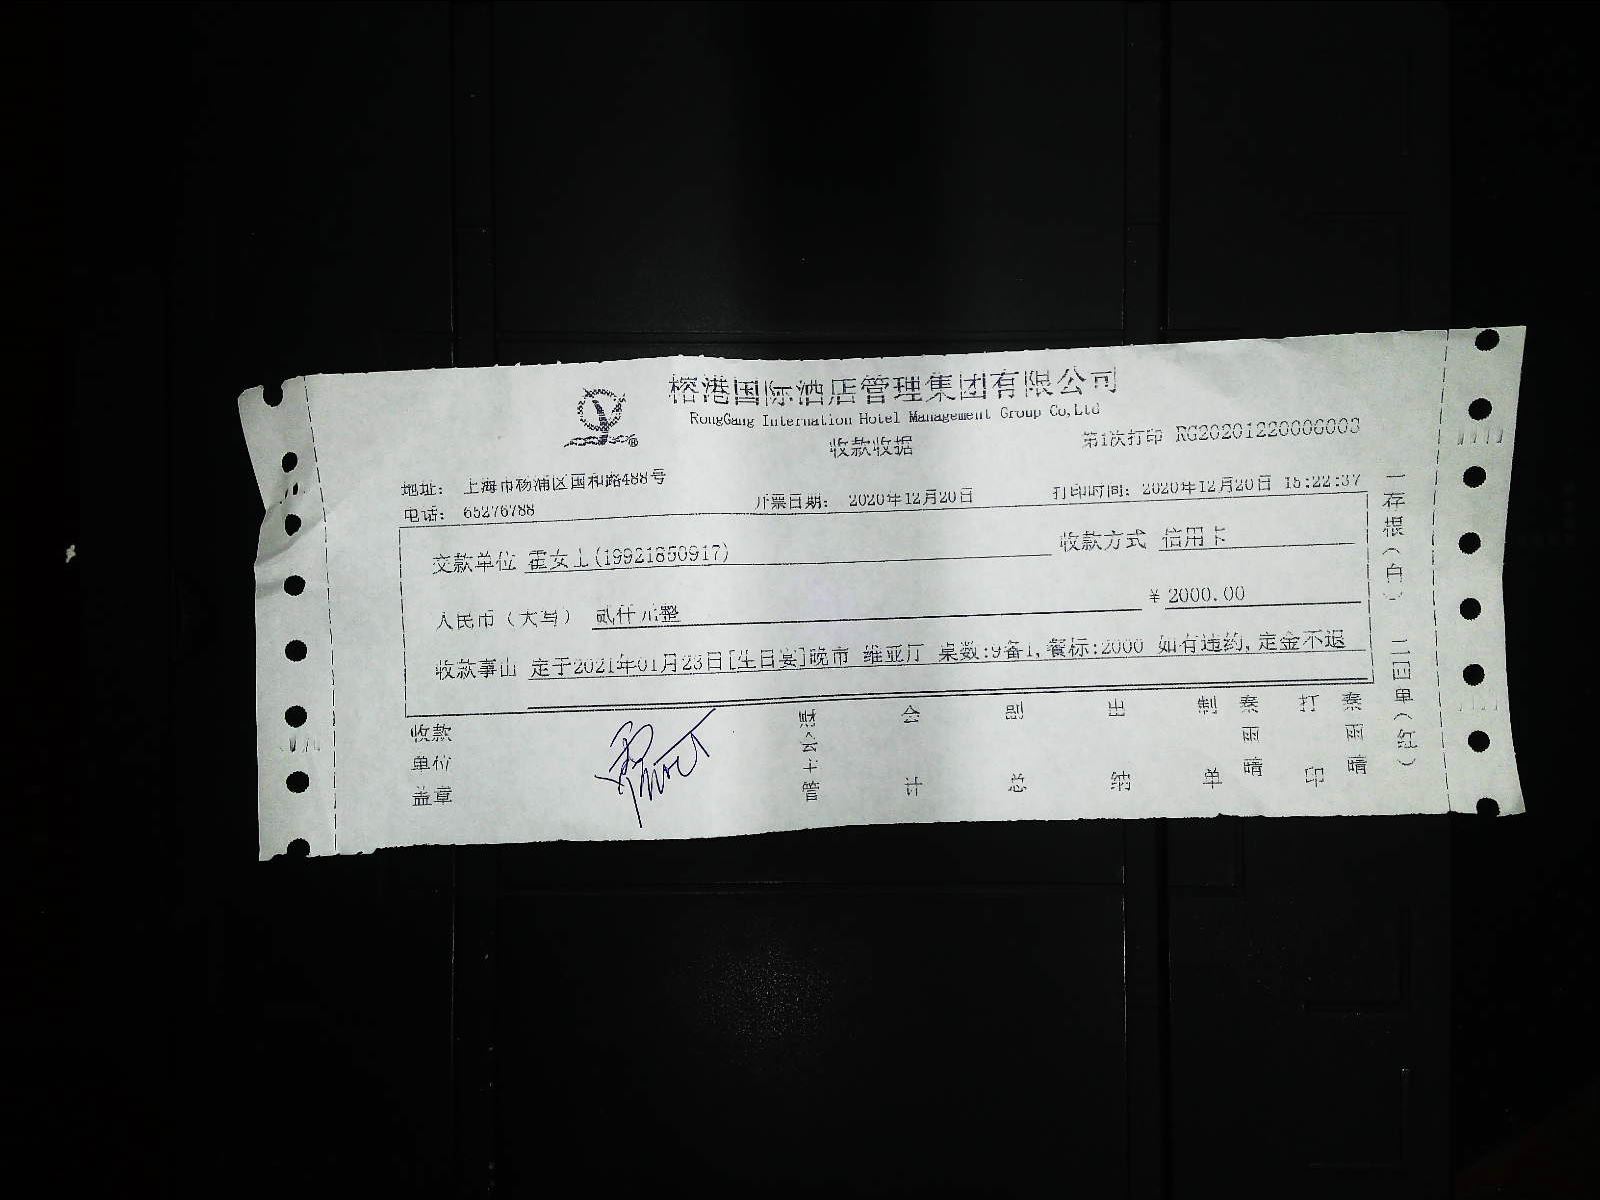 榕港国际酒店管理集团有限公司
RongGang Internation Hotel Management Group Co,Ltd
收款收据
第1次打印 RG20201220006003
地址: 上海市杨浦区国和路488号
电话: 65276788
开票日期: 2020年12月20日
打印时间: 2020年12月20日 15:22:37
交款单位 霍女士(19921850917)
收款方式 信用卡
人民币（大写） 贰仟元整
¥ 2000.00
收款事由 定于2021年01月23日[生日宴]晚市 维亚厅 桌数:9备1,餐标:2000 如有违约,定金不退
收款单位盖章
财会主管
会计
副总
出纳
制单
秦雨晴
打印
秦雨晴
一存根（白） 二回单（红）